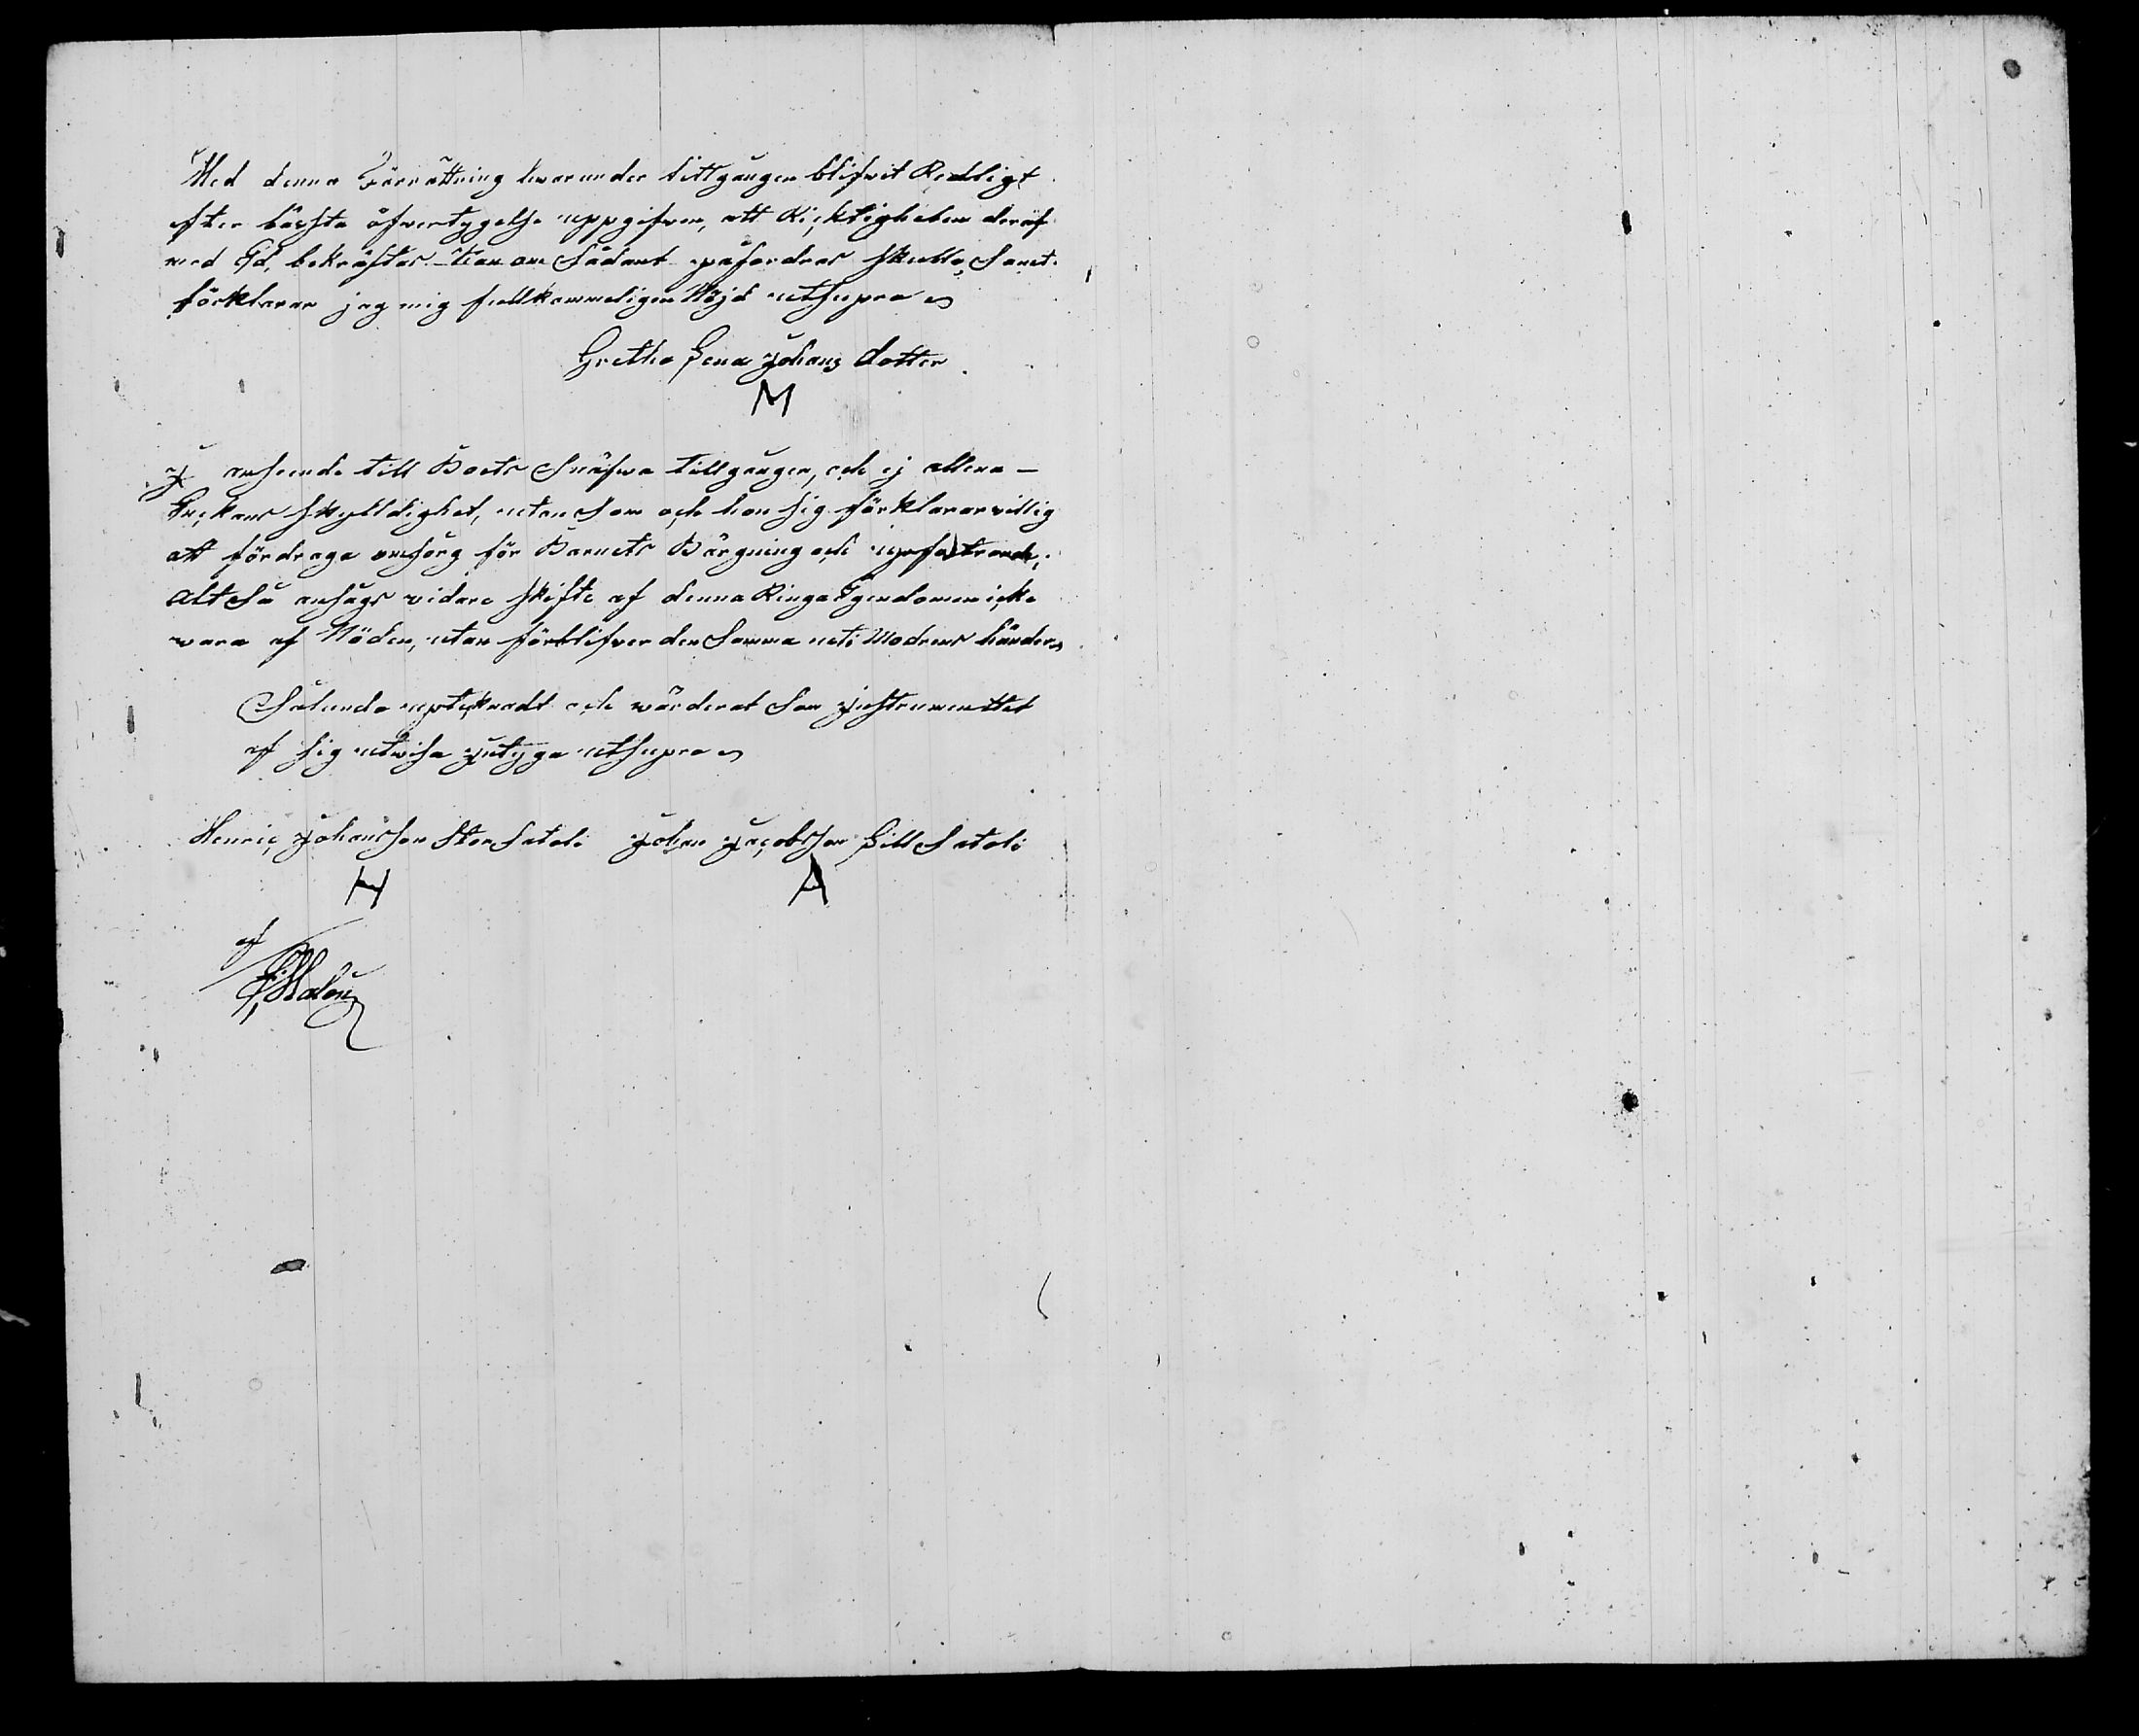 Med denna Förrättning hwarunder tillgången blifwit Redligt
efter bästa öfwertygelse uppgifven, att Ricktigheten deraf
med Ed, bekräftas kan om Sådant påfordras skulle, samt
förklarar jag mig fullkommeligen Nöjd utsupra
Gretha Lena Johans dotter
M
I anseende till Boets Snäfwa tillgångar, och ej allena
Enckans skylldighet, utan som och hon sig förklarar villig
att fördraga omsorg för Barnets Bärgning och upfostrande,
altså ansågs vidare skifte af denna Ringa Egendomen icke
vara af Nöden, utan förblifver den Samma uti Modrens händer
Sålunda uptecknadt och wärderat som Instrumenttet
af sig utwisa Intyga utsupra
Henric Johansson Stor Satoli Johan Jacobsson Lill Satoli
H A
af